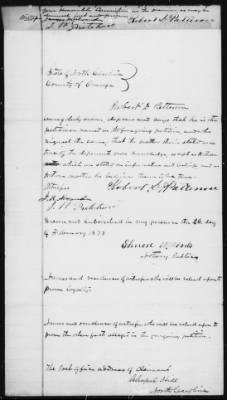 your Honorable Commission in the manner as may be
Robert S. Patterson
State of North Carolina
County of Orange
Robert S. Patterson
being duly sworn, deposes and says that he is the
petitioner named in the foregoing petition and who
signed the same; that the matters therein stated are
true of the deponents own knowledge, except as to those
matters which are stated on information and belief, and as
to those matters he believes them to be true.
Robert S. Patterson
Sworn and subscribed in my presence the 26 day
of February 1873
Notary Public
Names and residences of witnesses who will be relied upon to
prove loyalty
Names and residences of witnesses who will be relied upon to
prove the other facts alleged in the foregoing petition.
The Post Office address of Claimant
Chapel Hill
North Carolina